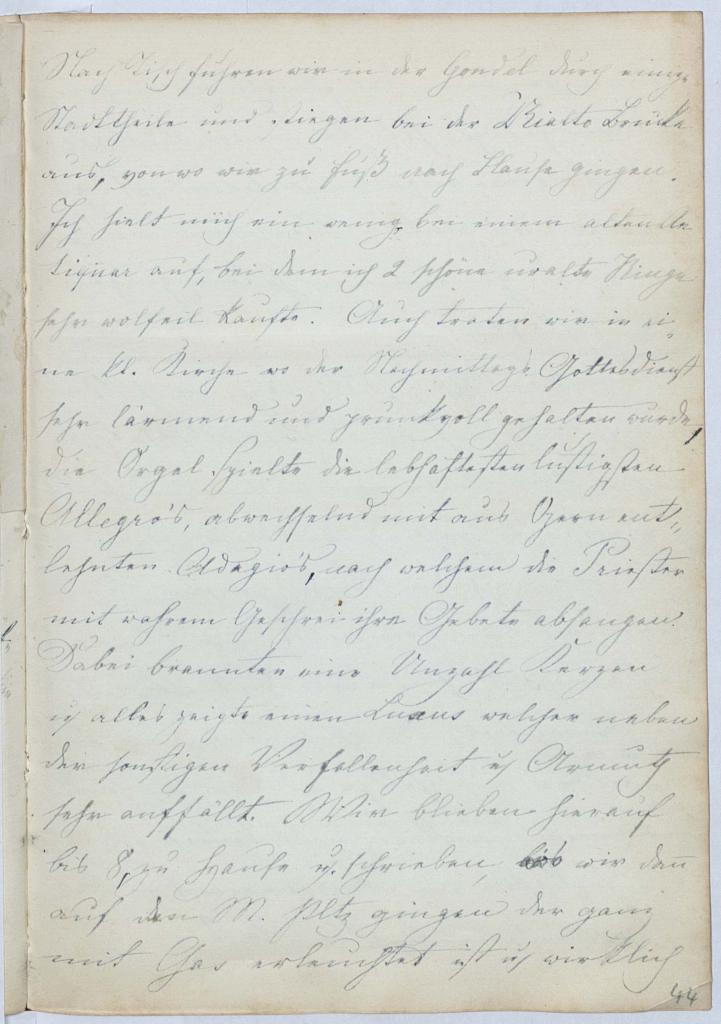 Nach Tisch fuhren wir in der Gondel durch einige
Stadttheile und stiegen bei der Rialto Brücke
aus, von wo wir zu Fuß nach Hause gingen.
Ich hielt mich ein wenig bei einem
auf, bei dem ich 2 schöne uralte Ringe
sehr wolfeil kaufte. Auch traten wir in ei„
ne kl. Kirche wo der Nachmittags Gottesdienst
sehr lärmend und prunkvoll gehalten wurde,
die Orgel spielte die lebhaftesten lustigsten
Allegro's, abwechselnd mit aus Opern ent„
lehnten Adagio's, nach welchem die Priester
mit wahrem Geschrei ihre Gebete absangen.
Dabei brannten eine Unzahl Kerzen
u alles zeigte einen Luxus welcher neben
der sonstigen Verfallenheit u Armuth
sehr auffällt. Wir blieben hierauf
bis 8, zu Hause u. schrieben, bis wir dan̄
auf den M. Pltz gingen der ganz
mit Gas erleuchtet ist u wirklich
44